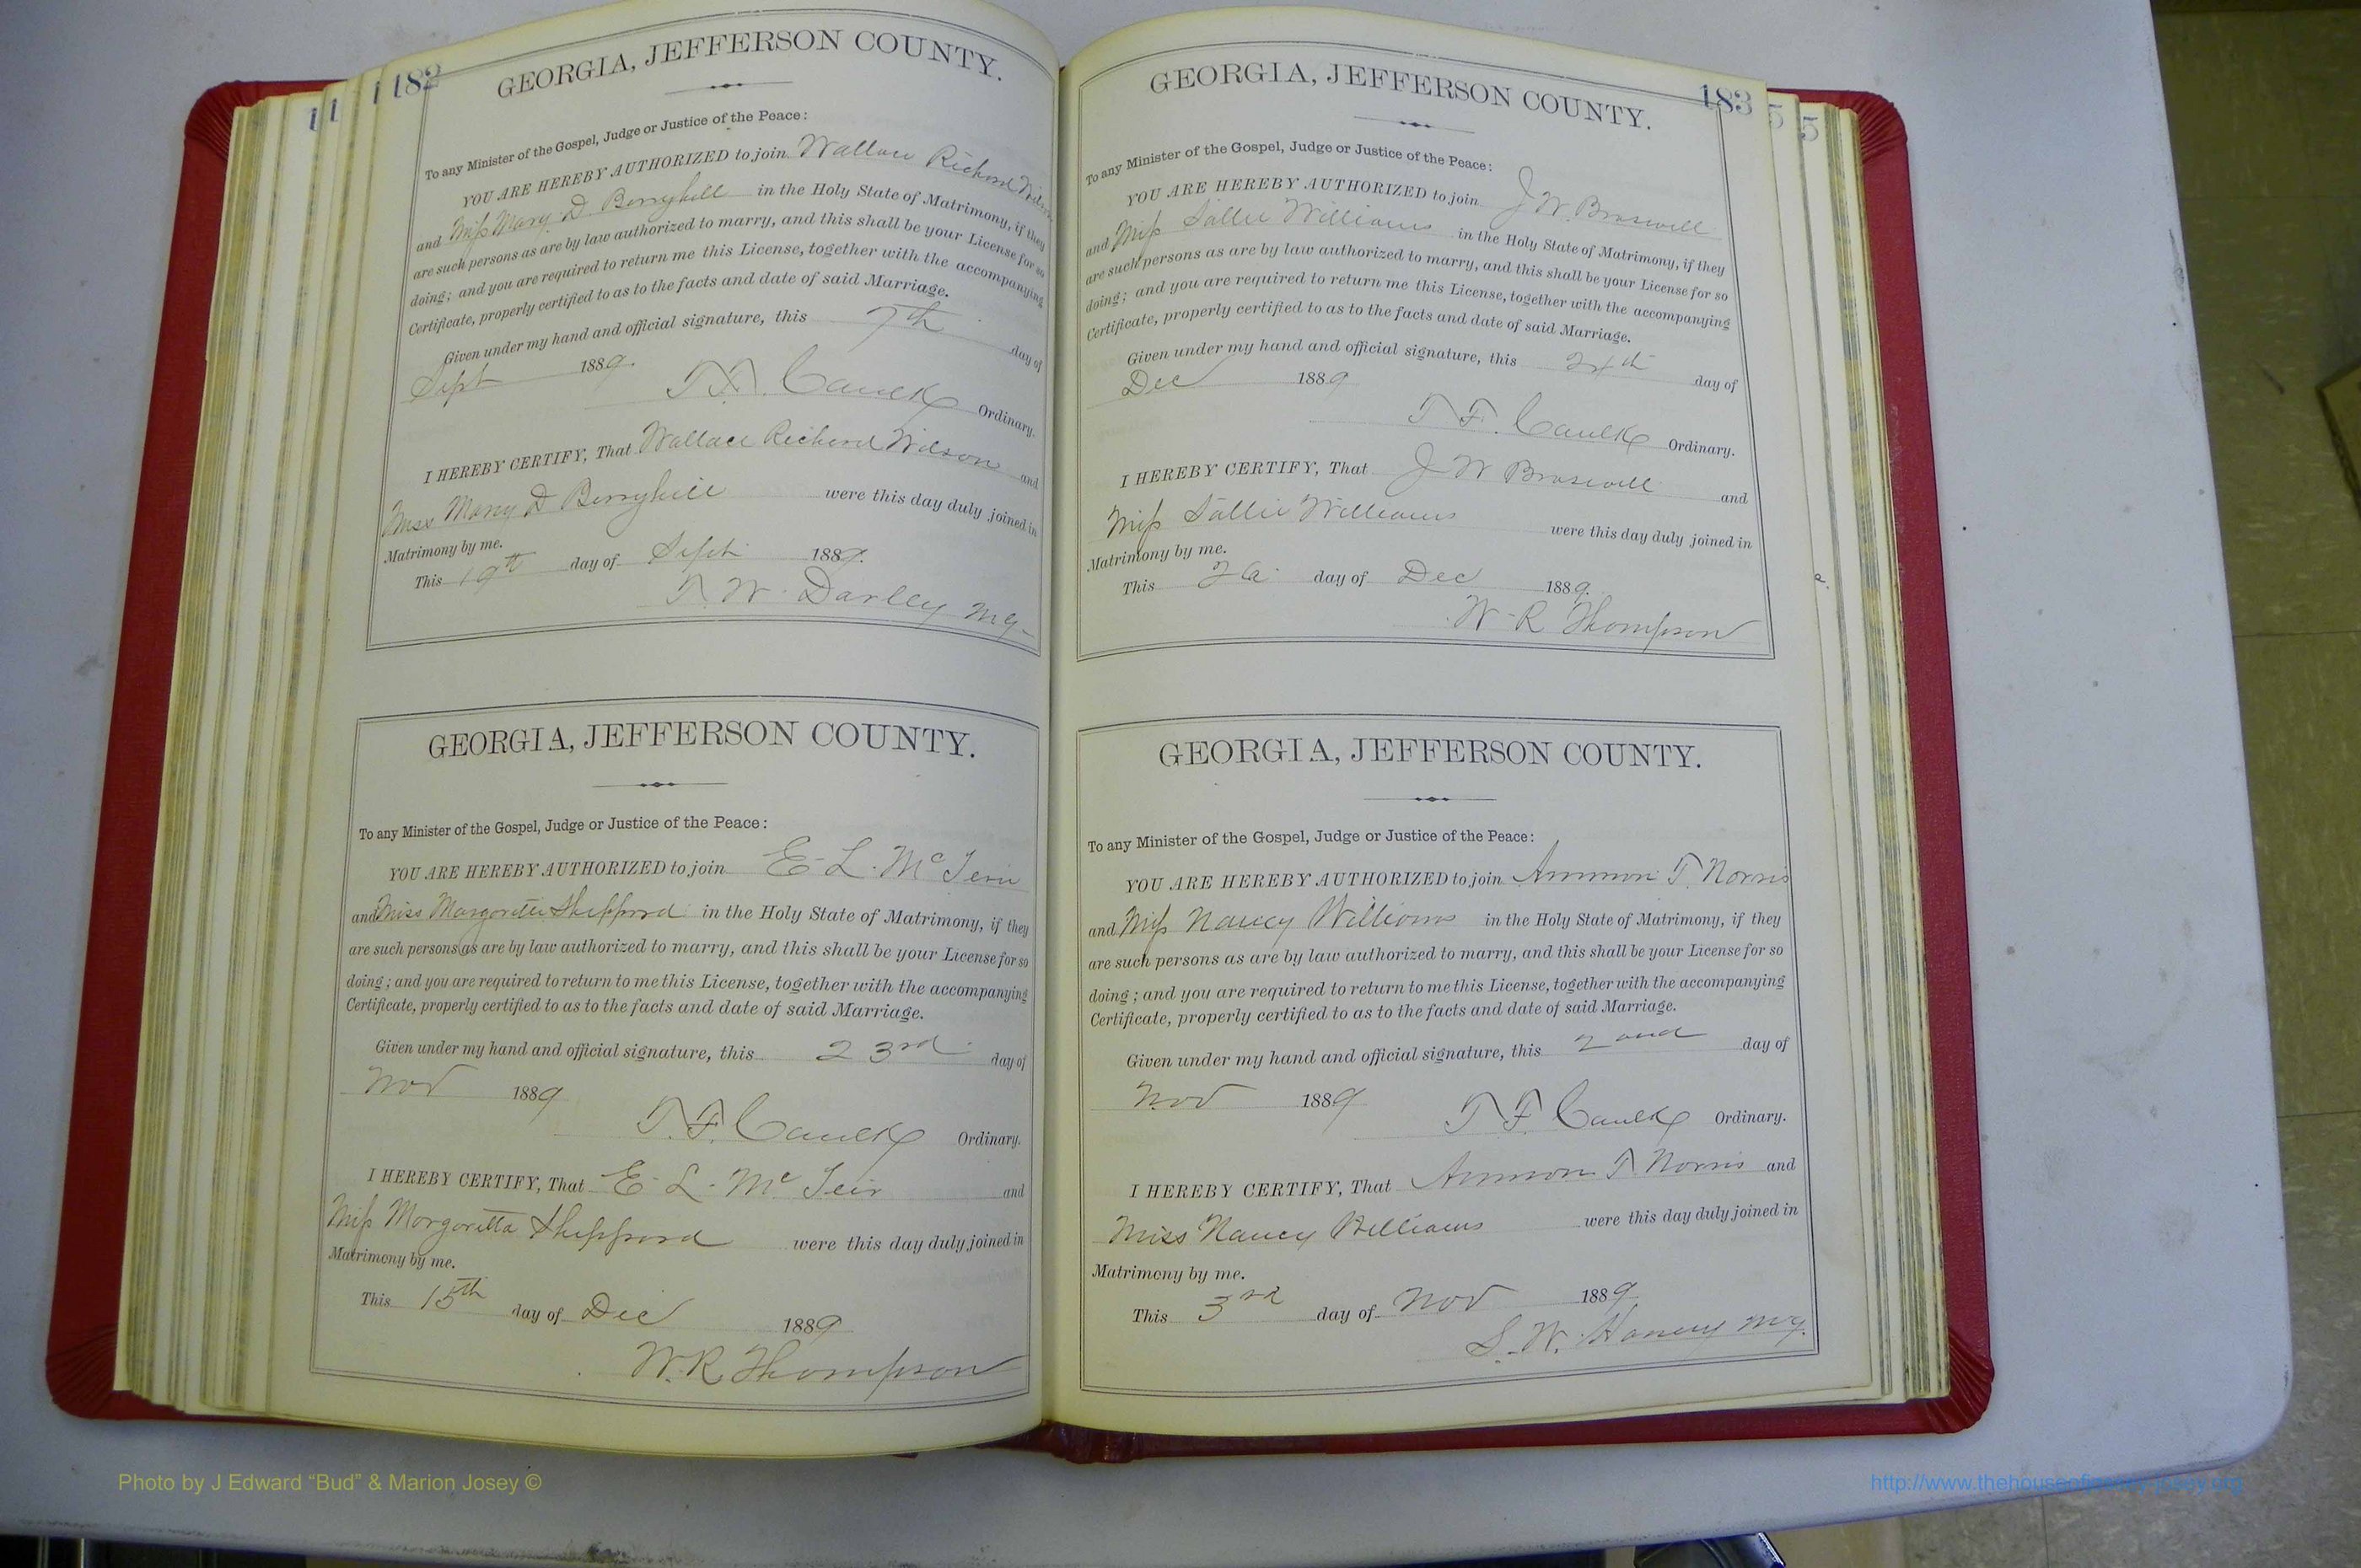 182
GEORGIA, JEFFERSON COUNTY.
To any Minister of the Gospel, Judge or Justice of the Peace:
YOU ARE HEREBY AUTHORIZED to join Wallace Richard Wilson
and Miss Mary D. Berryhill in the Holy State of Matrimony, if they
are such persons as are by law authorized to marry, and this shall be your License for so
doing; and you are required to return me this License, together with the accompanying
Certificate, properly certified to as to the facts and date of said Marriage.
Given under my hand and official signature, this 7th day of
Sept 1889.
T.F. Caulk Ordinary.
I HEREBY CERTIFY, That Wallace Richard Wilson and
Miss Mary D Berryhill were this day duly joined in
Matrimony by me.
This 19th day of Sept 1889.
T. W. Darley MG
GEORGIA, JEFFERSON COUNTY.
To any Minister of the Gospel, Judge or Justice of the Peace:
YOU ARE HEREBY AUTHORIZED to join E. L. Mc
and Miss Margoretta Sheppord in the Holy State of Matrimony, if they
are such persons as are by law authorized to marry, and this shall be your License for so
doing; and you are required to return to me this License, together with the accompanying
Certificate, properly certified to as to the facts and date of said Marriage.
Given under my hand and official signature, this 23rd day of
Nov 1889
T.F. Caulk Ordinary.
I HEREBY CERTIFY, That E. L. Mc Teir and
Miss Morgoretta Sheppord were this day duly joined in
Matrimony by me.
This 15th day of Dec 1889
W.R. Thompson
183
GEORGIA, JEFFERSON COUNTY.
To any Minister of the Gospel, Judge or Justice of the Peace:
YOU ARE HEREBY AUTHORIZED to join J. W. Braswell
and Miss Sallie Williams in the Holy State of Matrimony, if they
are such persons as are by law authorized to marry, and this shall be your License for so
doing; and you are required to return me this License, together with the accompanying
Certificate, properly certified to as to the facts and date of said Marriage.
Given under my hand and official signature, this 24th day of
Dec 1889
T F. Caulk Ordinary.
I HEREBY CERTIFY, That J W Braswell and
Miss Sallie Williams were this day duly joined in
Matrimony by me.
This day of Dec 1889.
W-R Thompson
GEORGIA, JEFFERSON COUNTY.
To any Minister of the Gospel, Judge or Justice of the Peace:
YOU ARE HEREBY AUTHORIZED to join Ammon T. Norris
and Miss Nancy Williams in the Holy State of Matrimony, if they
are such persons as are by law authorized to marry, and this shall be your License for so
doing; and you are required to return to me this License, together with the accompanying
Certificate, properly certified to as to the facts and date of said Marriage.
Given under my hand and official signature, this 2ond day of
Nov 1889
T F. Caulk Ordinary.
I HEREBY CERTIFY, That Ammon T. Norris and
Miss Nancy Williams were this day duly joined in
Matrimony by me.
This 3rd day of Nov 1889
S. W. MG.
Photo by J Edward “Bud” & Marion Josey ©